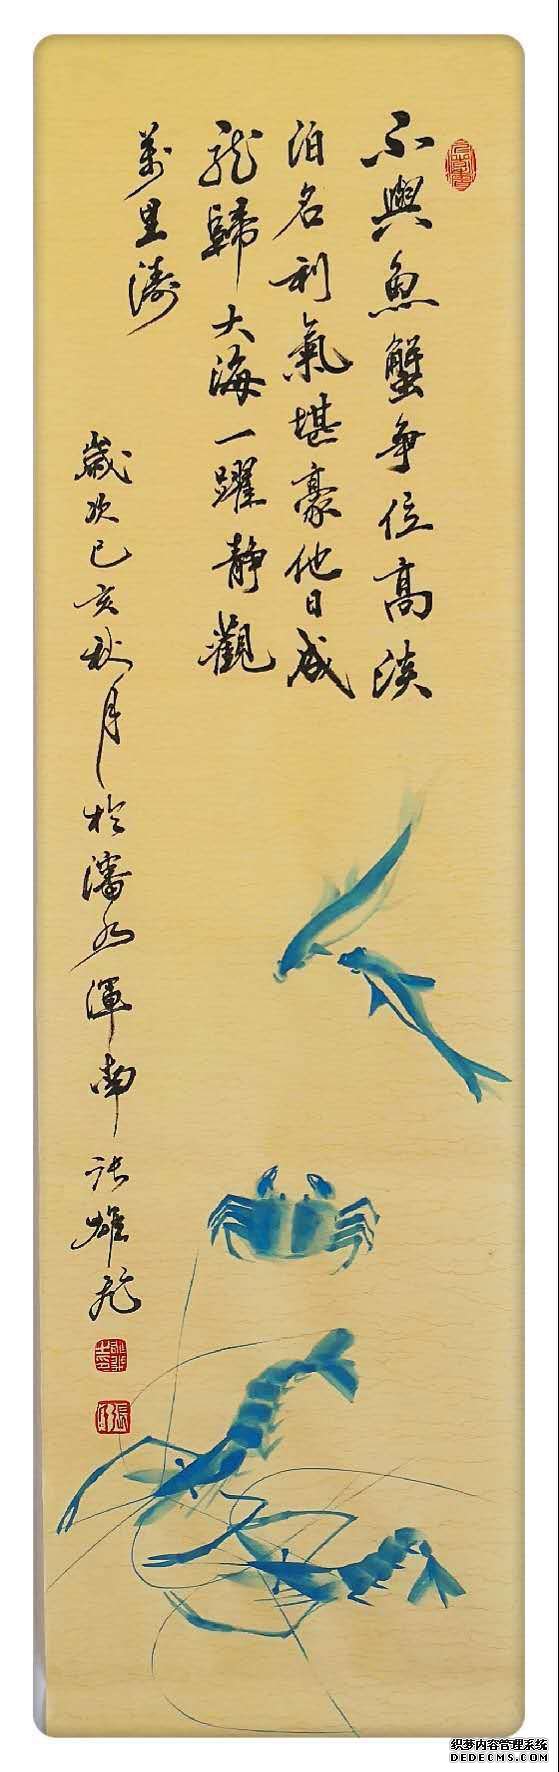 不與魚蟹争位高淡
泊名利氣堪豪他日成
龍歸大海一躍靜觀
萬里濤
歲次己亥秋月於瀋水渾南張雄飛
织梦内容管理系统
DEDECMS.COM